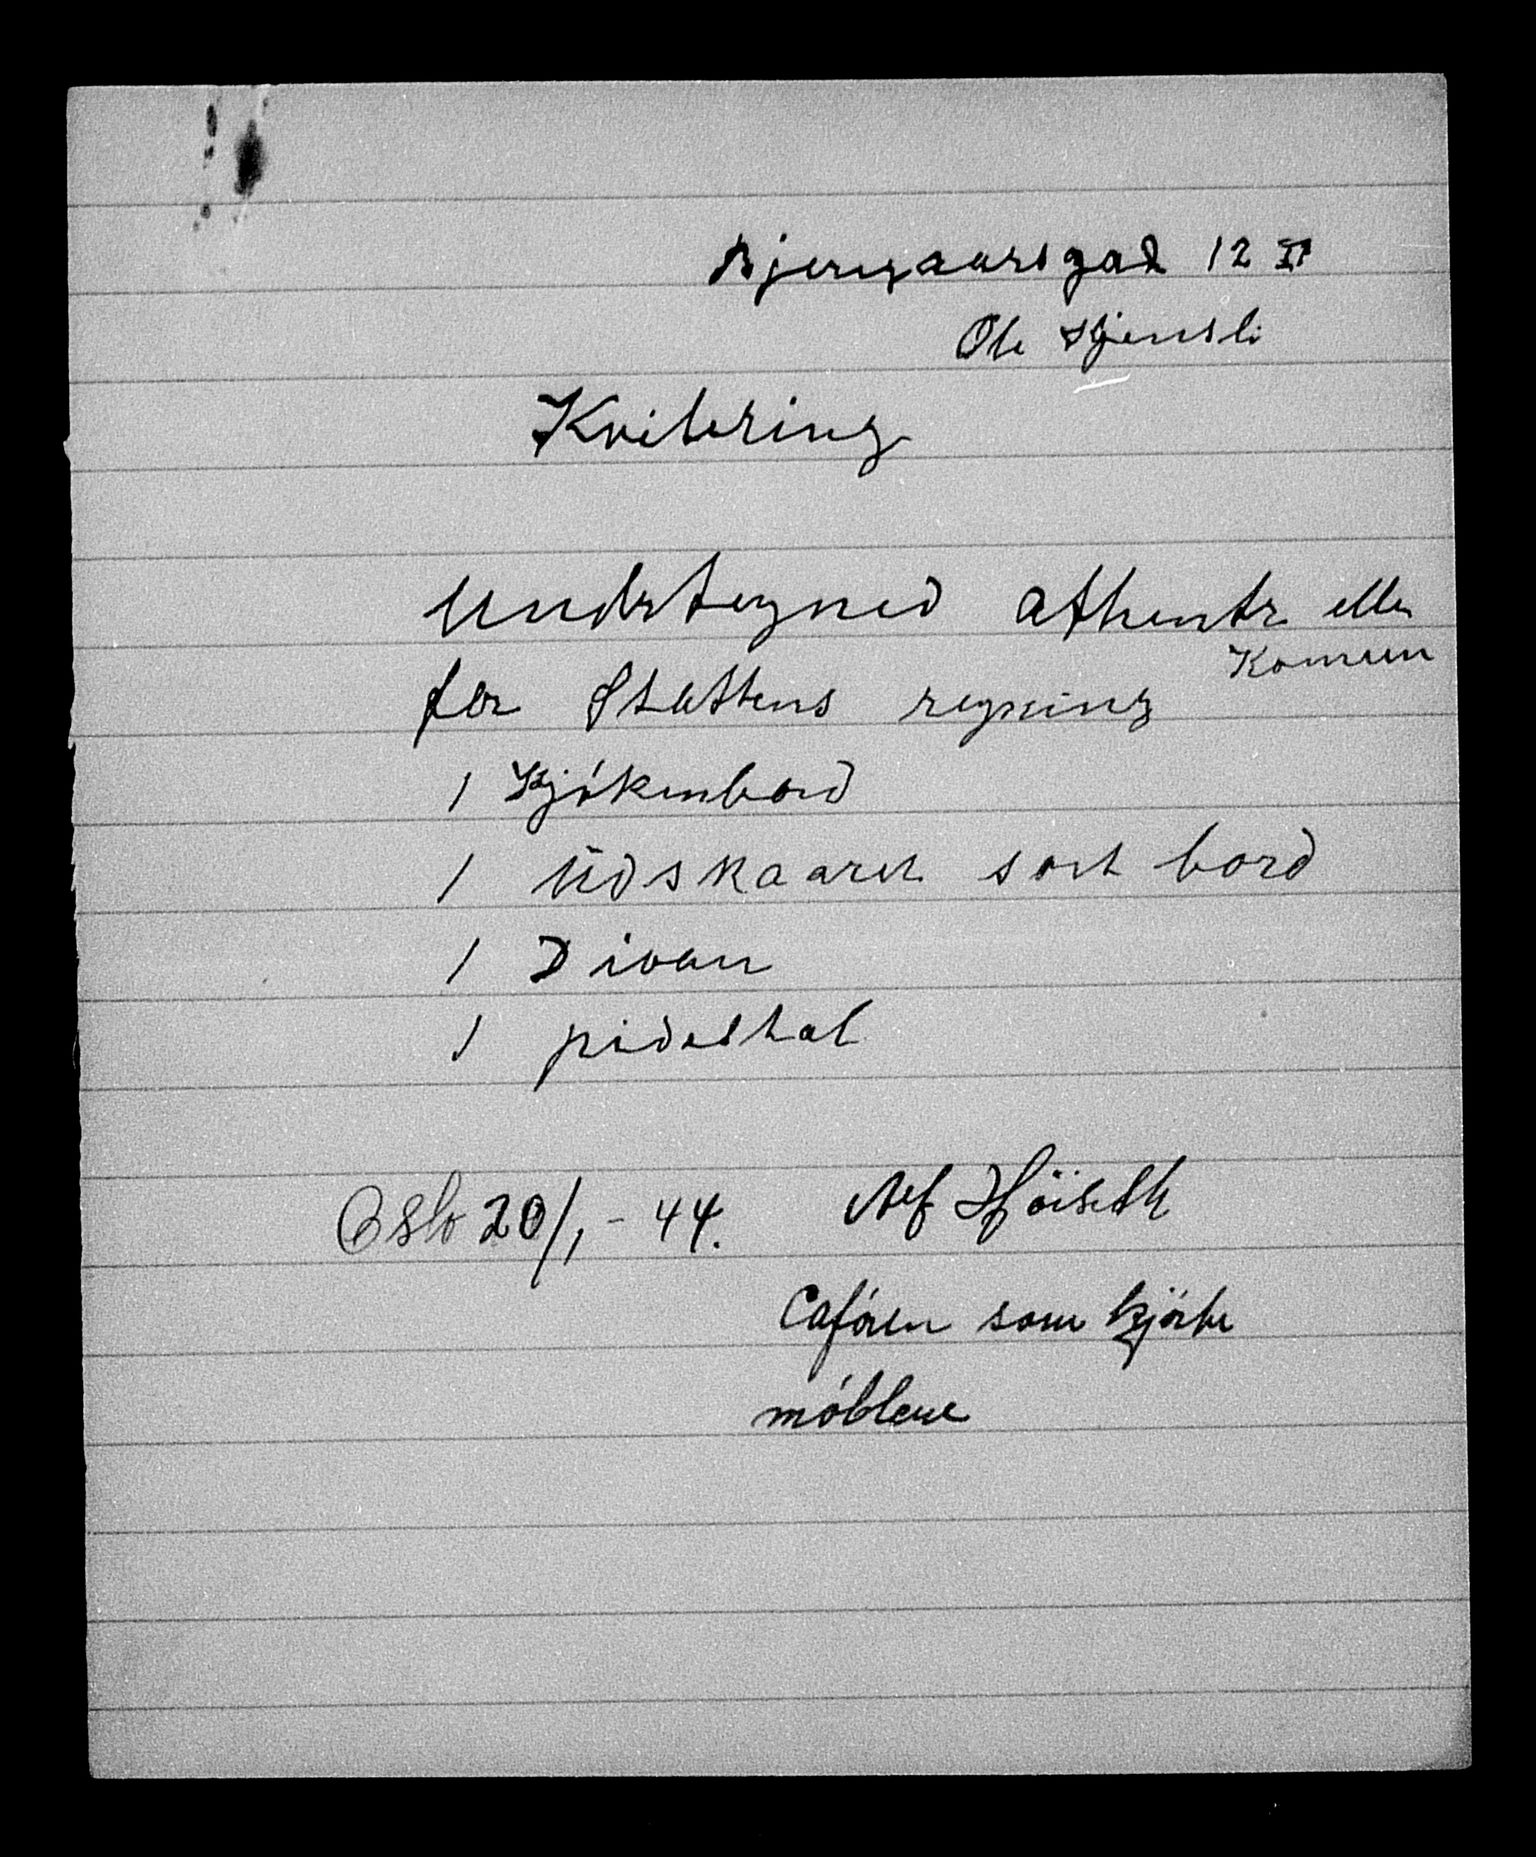 Bjeregaarsgad 12 II
Ole Stjensli
Kvitering
Undertegned afhentr eller
Komuen
for Stattens regning
1 Kjókenbord
1 Udskaaret sort bord
1 Divan
1 pidestal
Oslo 20/1 - 44. Alf Höiseth
som kjörte
möblene